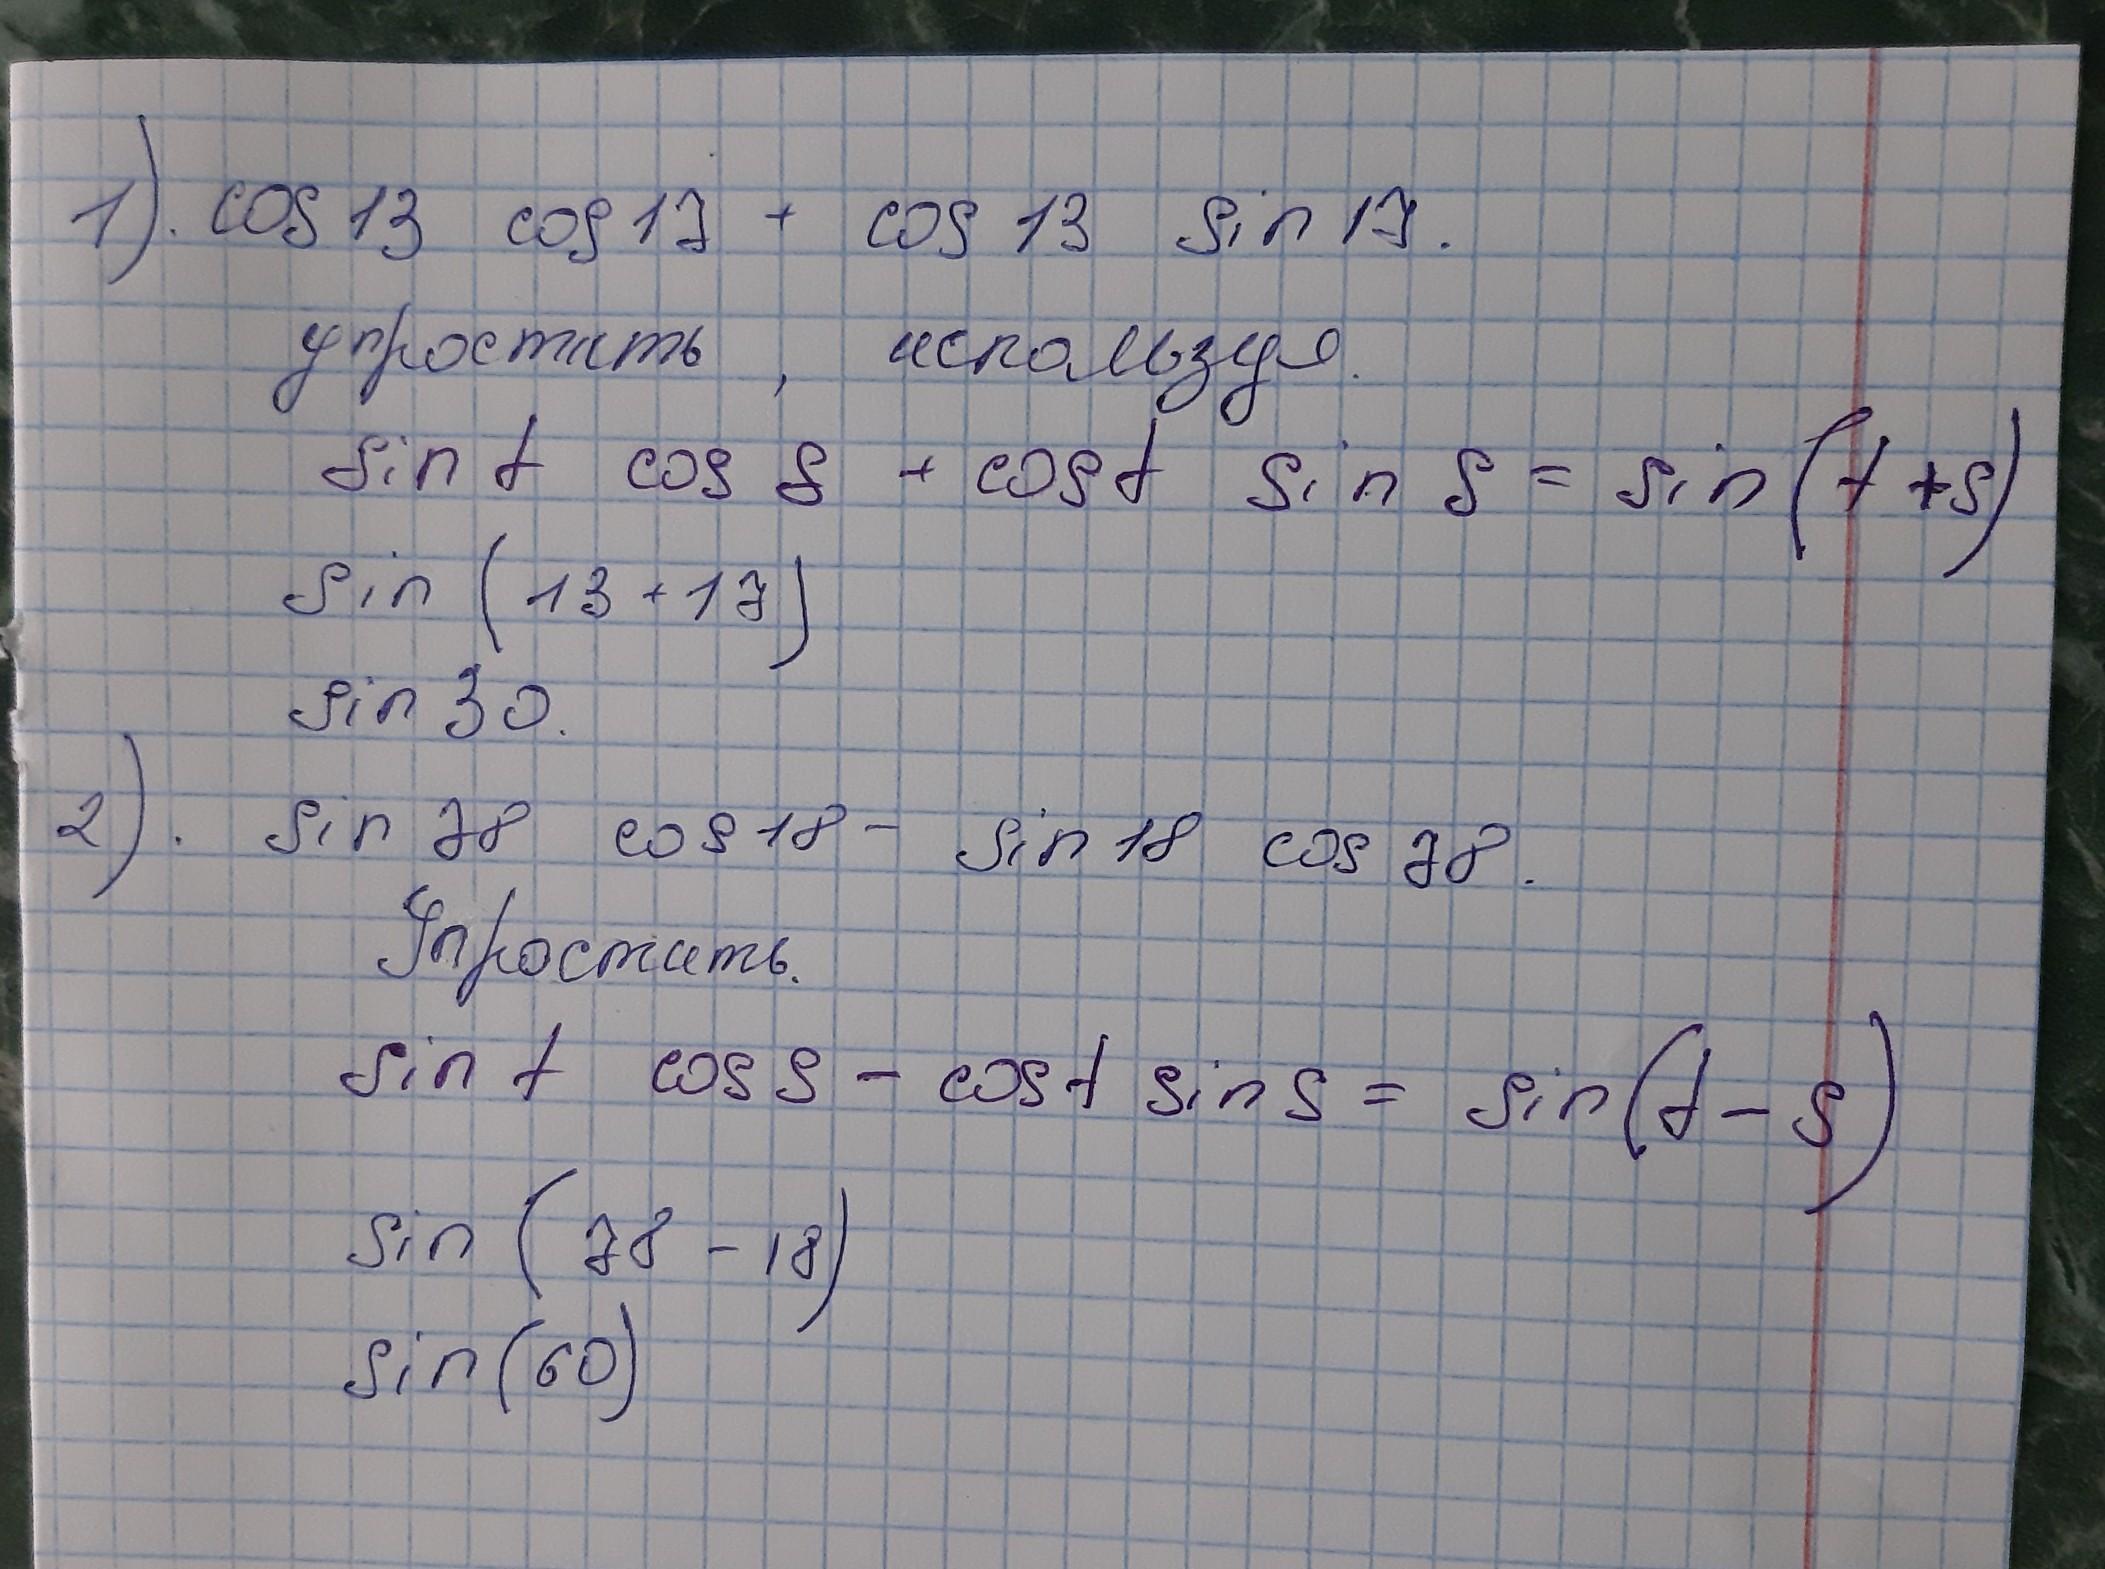 1). cos 13 cos 17 + cos 13 sin 17.
упростить, используя.
sin t cos s + cos t sin s = sin(t+s)
sin (13+17)
sin 30.
2). sin 78 cos 18 - sin 18 cos 78.
Упростить.
sin t cos s - cos t sin s = sin(t-s)
sin (78-18)
sin(60)